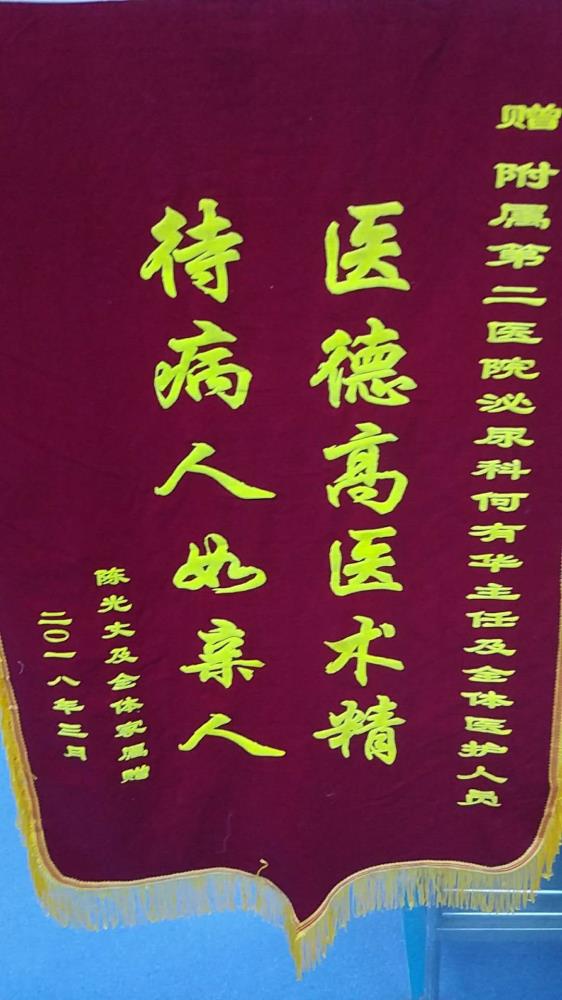 赠 附属第二医院泌尿科何有华主任及全体医护人员
医德高医术精
待病人如亲人
陈光文及全体家属赠
二〇一八年三月